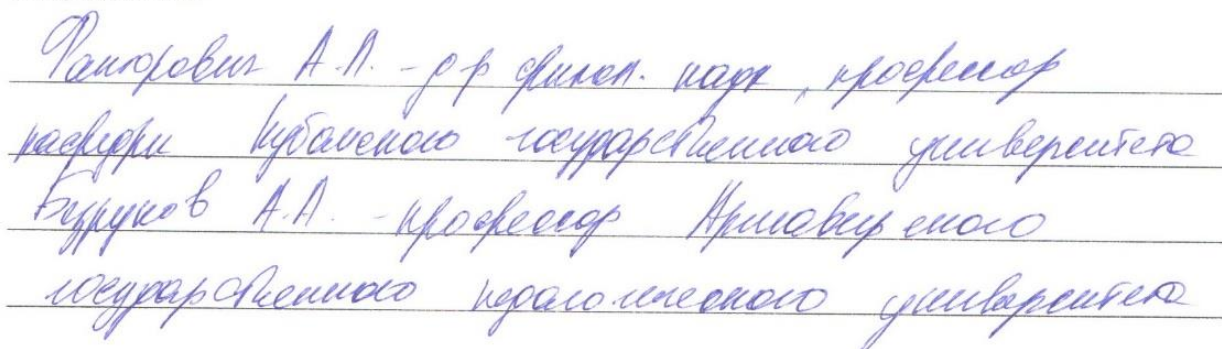 А.П. - д-р филол. наук, профессор
кафедры Кубанского государственного университета
А.А. - профессор Армавирского
государственного педагогического университета